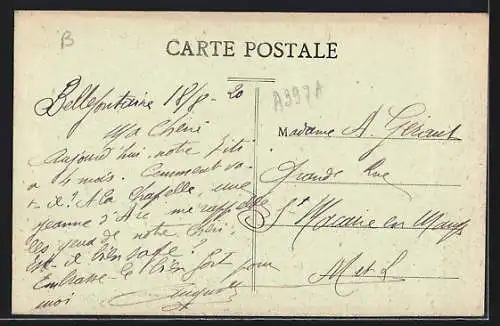 B
CARTE POSTALE
A397A
Bellefontaine 18/8 - 20
Ma Chérie
Aujourd'hui notre fils
a 4 mois. Comment va-
t-il? A la chapelle, une
Jeanne d'Arc me rappelle
les yeux de notre chéri.
Est-il bien sage?
Embrasse le bien fort pour
moi
Madame A.
Grande Rue
St Macaire en Mauges
M et L